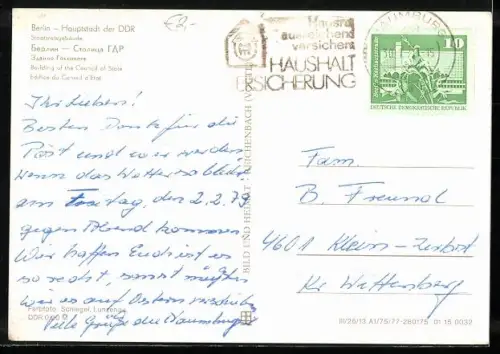 Berlin — Hauptstadt der DDR
Staatsratsgebäude
Берлин — Столица ГДР
Здание Госсовета
Building of the Council of State
Edifice du Conseil d'Etat
€2,-
Ihr Lieben!
Besten Dank für die
Post und wir werden
wenn das Wetter so bleibt
am Freitag, den 2.2.79
gegen Abend kommen.
Wir hoffen Euch ist es
so recht, sonst müßten
wir es auf Ostern verschieben
Viele Grüße die Naumburger
Farbfoto: Spiegel, Lunzenau
DDR 0,20
BILD UND HEIMAT REICHENBACH
Hausrat
ausreichend
versichern
HAUSHALT
VERSICHERUNG
NAUMBURG
10
DEUTSCHE DEMOKRATISCHE REPUBLIK
Fam.
B. Freund
4601 Klein-Zerbst
Kr. Wittenberg
III/26/13 A1/75/77-280175 01 15 0032